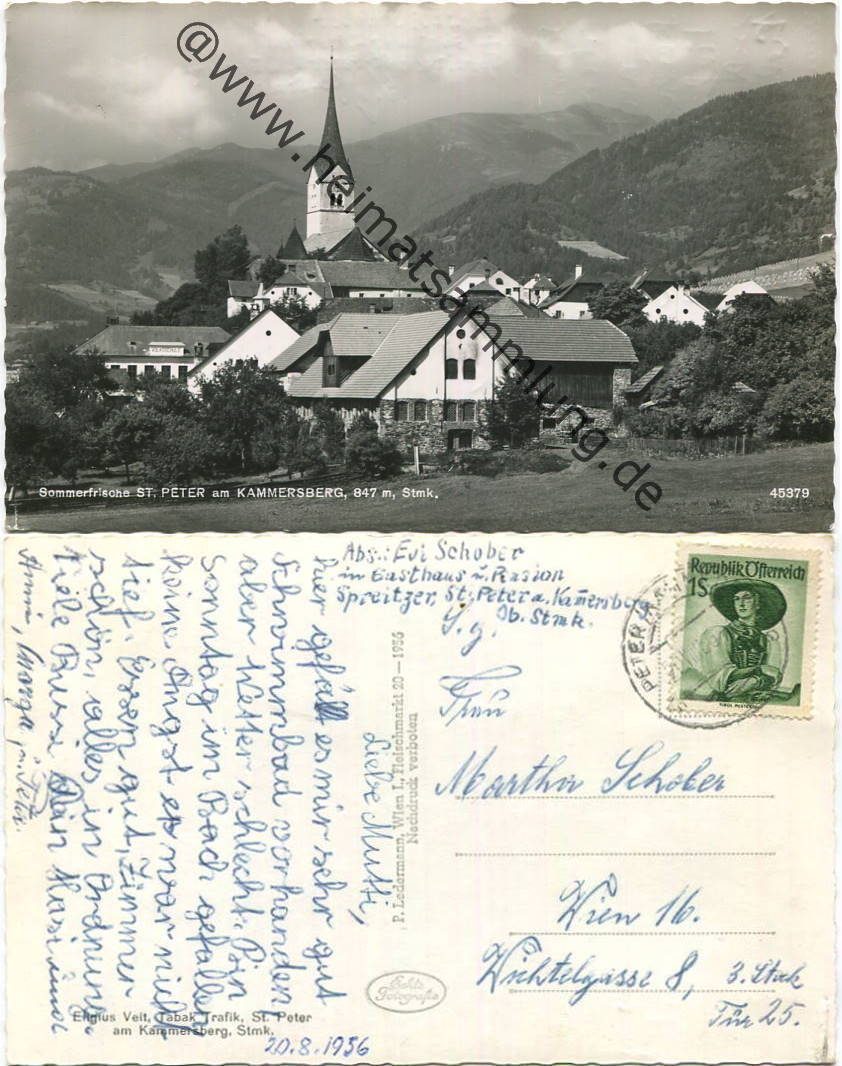 @www.heimatsammlung.de
VOLKSSCHULE
Sommerfrische ST. PETER am KAMMERSBERG, 847 m, Stmk.
45379
Abs.: Evi Schober
in Gasthaus u. Pension
Spreitzer, St. Peter a. Kam̄ersberg
Ob. Stmk.
S. g.
Frau
Martha Schober
Wien 16.
Wichtelgasse 8, 3. Stock
Tür 25.
Republik Österreich
1S
PETER
P. Ledermann, Wien I., Fleischmarkt 20 — 1956
Nachdruck verboten
Echte
Fotografie
Eligius Veit, Tabak Trafik, St. Peter
am Kammersberg, Stmk.
20.8.1956
Liebe Mutti,
hier gefällt es mir sehr gut
Schwimmbad vorhanden
aber Wetter schlecht. Bin
Sonntag im Bach gefallen
keine Angst er war nicht
tief. Essen gut, Zimmer
schön, alles in Ordnung.
Viele Bussi Dein Hasi und
Anni,